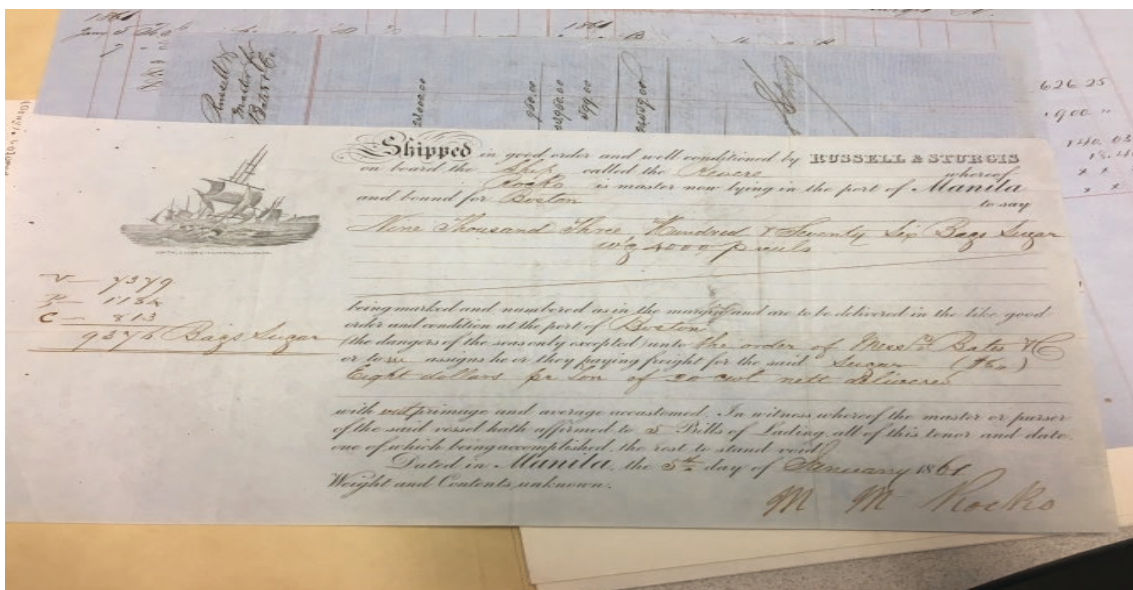 1861
1861
626.25
900 "
Russell &
Bates & Co.
Shipped in good order and well conditioned by RUSSELL & STURGIS
on board the Ship called the Revere whereof
is master now lying in the port of Manila
and bound for Boston to say
Nine Thousand Three Hundred & Seventy Six Bags Sugar
w'g 4000 piculs
7379
1184
C — 813
9376 Bags Sugar
being marked and numbered as in the margin and are to be delivered in the like good
order and condition at the port of Boston
(the dangers of the seas only excepted) unto the order of Mess. Bates & C
or to assigns he or they paying freight for the said Sugar
Eight dollars per ton of 20 cwt nett delivered
with primage and average accustomed. In witness whereof the master or purser
of the said vessel hath affirmed to 5 Bills of Lading, all of this tenor and date
one of which being accomplished, the rest to stand void.
Dated in Manila, the 5th day of January 1861
Weight and Contents unknown.
M M